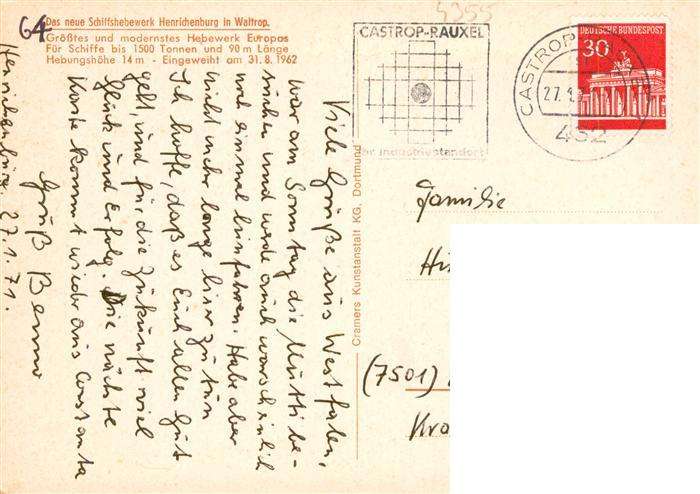 64
4355
Das neue Schiffshebewerk Henrichenburg in Waltrop.
Größtes und modernstes Hebewerk Europas
Für Schiffe bis 1500 Tonnen und 90 m Länge
Hebungshöhe 14 m - Eingeweiht am 31. 8. 1962
Henrichenburg, 27.1.71.
Viele Grüße aus Westfalen,
war am Sonntag die Mutti be-
suchen und werde auch warscheinlich
noch einmal hinfahren. Habe aber
nicht mehr lange hier zu tun
Ich hoffe, daß es Euch allen gut
geht, und für die Zukunft viel
Glück und Erfolg. Die nächste
Karte kommt wieder aus Constanta
Gruß Benno
Cramers Kunstanstalt KG, Dortmund
CASTROP-RAUXEL
Ihr Industriestandort
CASTROP
27.1.
462
DEUTSCHE BUNDESPOST
30
Familie
Hi
(7501)
Kro